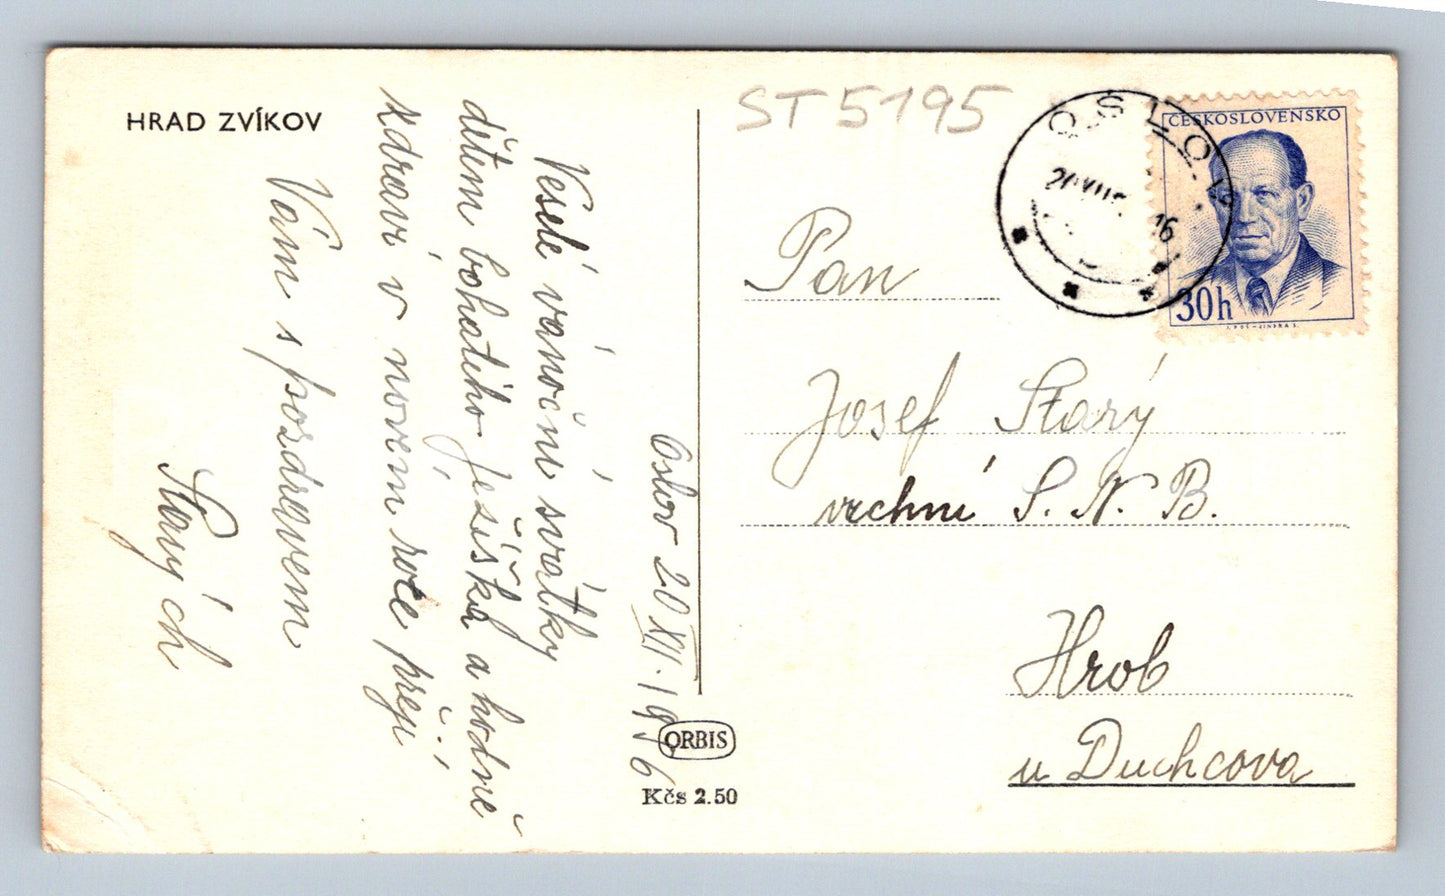 HRAD ZVÍKOV
Oslov 20 XII. 1956
Veselé vánoční svátky
dětem bohatiho Ježiška a hodně
zdraví v novém roce přeji
Vám s pozdravem
Starých
ORBIS
Kčs 2.50
ST 5195
OSLOV
16
ČESKOSLOVENSKO
30h
Pan
Josef Starý
vrchní S. N. B.
Hrob
u Duchcova